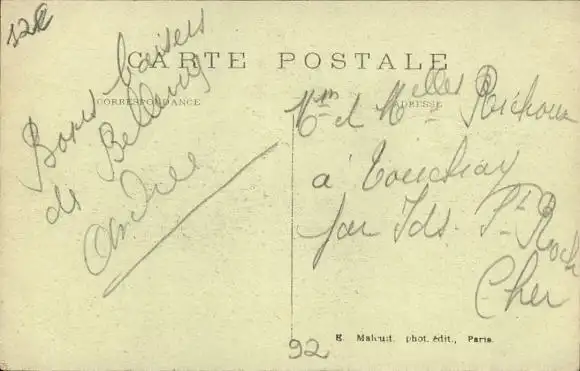 12c
CARTE POSTALE
CORRESPONDANCE
ADRESSE
Bons baisers
de Bellevue
Andrée
Mme et Melles Richoux
à Touchay
par Ids. St Roch
Cher
92
E. Malcuit, phot. édit., Paris.